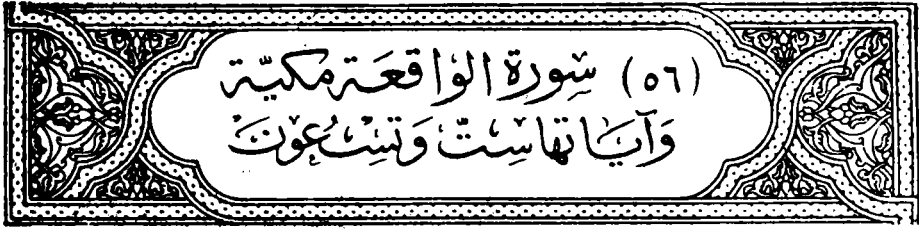 (٥٦) سُورَةُ الوَاقِعَة مَكيّة
وَآيَاتُهَا سِتّ وَتِسْعُونَ